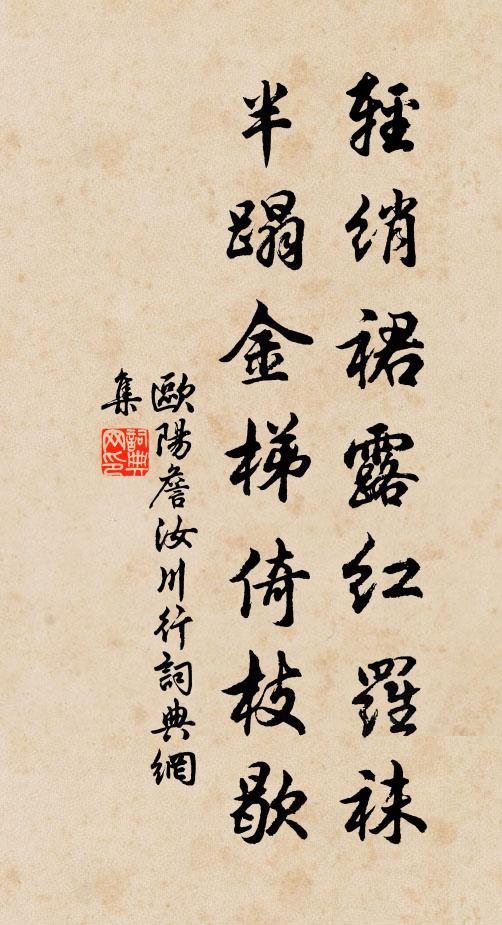 輕綃裙露紅羅袜
半蹋金梯倚枝歇
歐陽詹汝川行詞典網
集
詞典
网印